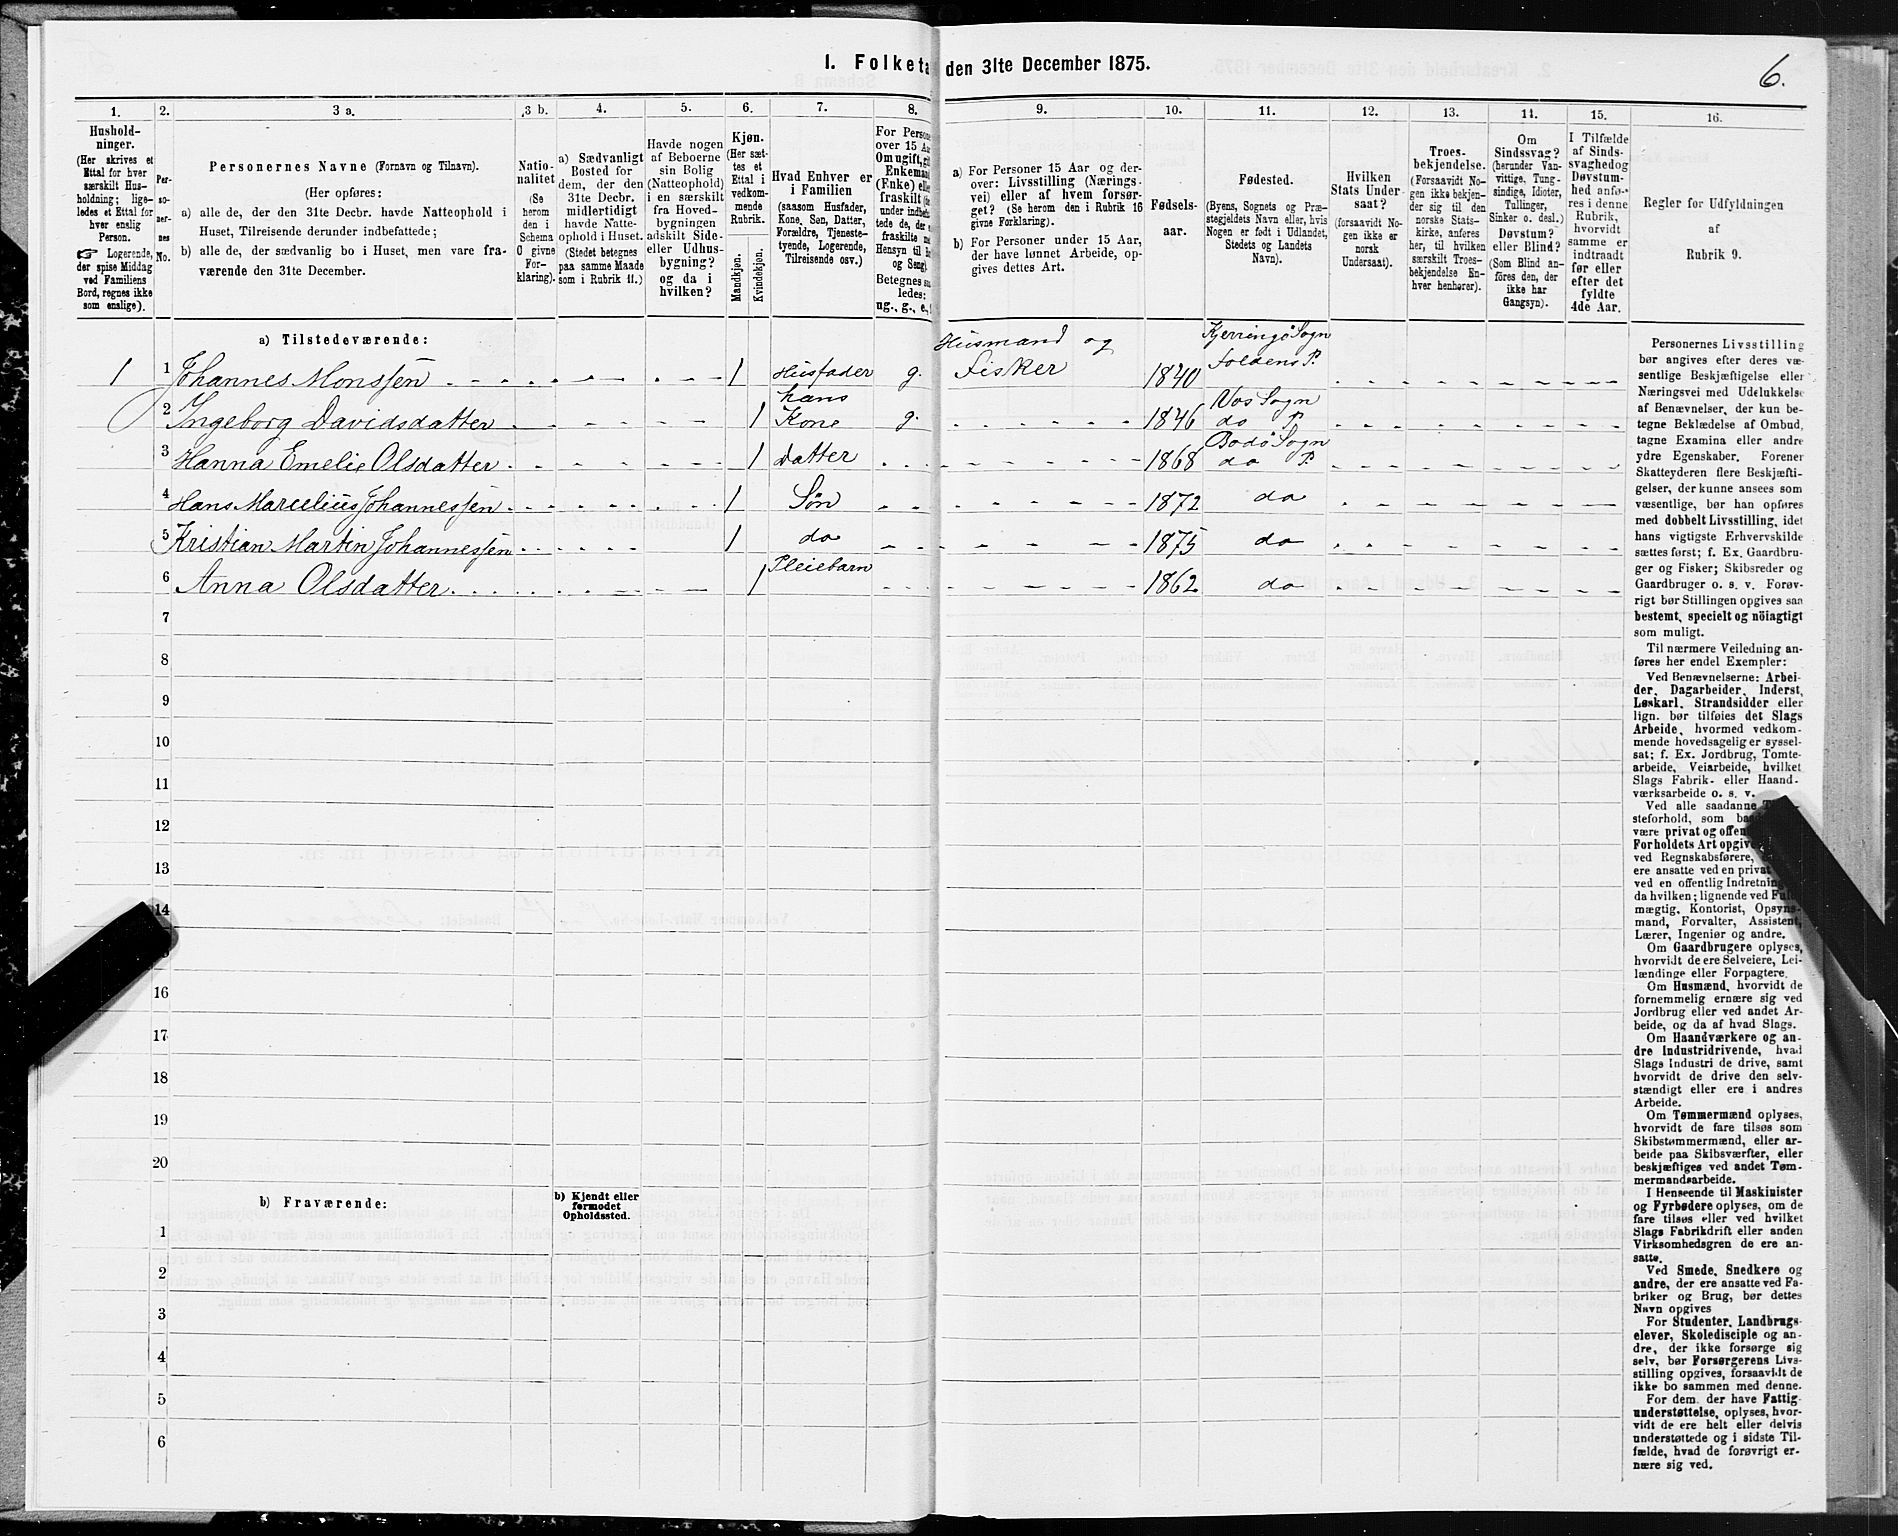 I. Folketa den 31te December 1875.
6.
1.
Hushold-
ninger.
(Her skrives et
Ettal for hver
særskilt Hus-
holdning; lige-
ledes et Ettal for
hver enslig
Person.
☞ Logerende,
der spise Middag
ved Familiens
Bord, regnes ikke
som enslige).
2.
Per-
so-
ner-
nes
No.
3 a.
Personernes Navne (Fornavn og Tilnavn).
(Her opføres:
a) alle de, der den 31te Decbr. havde Natteophold i
Huset, Tilreisende derunder indbefattede;
b) alle de, der sædvanlig bo i Huset, men vare fra-
værende den 31te December.
3 b.
Natio-
nalitet
(Se
herom
den i
Schema
O givne
For-
klaring).
4.
a) Sædvanligt
Bosted for
dem, der den
31te Decbr.
midlertidigt
havde Natte-
ophold i Huset.
(Stedet betegnes
paa samme Maade
som i Rubrik 11.)
5.
Havde nogen
af Beboerne
sin Bolig
(Natteophold)
i en særskilt
fra Hoved-
bygningen
adskilt Side-
eller Udhus-
bygning?
og da i
hvilken?
6.
Kjøn.
(Her sæt-
tes et
Ettal i
vedkom-
mende
Rubrik.
Mandkjøn.
Kvindekjøn.
7.
Hvad Enhver er
i Familien
(saasom Husfader,
Kone, Søn, Datter,
Forældre, Tjeneste-
tyende, Logerende,
Tilreisende osv.)
8.
For Persone
over 15 Aa
Om ugift, gif
Enkemand
(Enke) elle
fraskilt
under indbefat-
tede de, der
fraskilte m
Hensyn til Bo
og Seng).
Betegnes sa
ledes:
ug., g., e.,
9.
a) For Personer 15 Aar og der-
over: Livsstilling (Nærings-
vei) eller af hvem forsør-
get? (Se herom den i Rubrik 16
givne Forklaring).
b) For Personer under 15 Aar,
der have lønnet Arbeide, op-
gives dettes Art.
10.
Fødsels-
aar.
11.
Fødested.
(Byens, Sognets og Præ-
stegjeldets Navn eller, hvis
Nogen er født i Udlandet,
Stedets og Landets
Navn).
12.
Hvilken
Stats Under-
saat?
(forsaavidt No-
gen ikke er
norsk
Undersaat).
13.
Troes-
bekjendelse.
(Forsaavidt No-
gen ikke bekjen-
der sig til den
norske Stats-
kirke, anføres
her, til hvilken
særskilt Troes-
bekjendelse En-
hver henhører).
14.
Om
Sindssvag?
(herunder Van-
vittige, Tung-
sindige, Idioter,
Tullinger,
Sinker o. desl.)
Døvstum?
eller Blind?
(Som Blind an-
føres den, der
ikke har
Gangsyn).
15.
I Tilfælde
af Sinds-
svaghed og
Døvstum-
hed anfø-
res i denne
Rubrik,
hvorvidt
samme er
indtraadt
før eller
efter det
fyldte
4de Aar.
16.
Regler for Udfyldningen
af
Rubrik 9.
a) Tilstedeværende:
1 1 Johannes Monssen 1 Husfader g. Husmand og Fisker 1840 Kjerringø Sogn Foldens P.
2 Ingeborg Davidsdatter 1 hans Kone g. 1846 Nos Sogn do P.
3 Hanna Emelie Olsdatter 1 Datter 1868 Bodø Sogn do P.
4 Hans Marcelius Johannessen 1 Søn 1872 do
5 Kristian Martin Johannessen 1 do 1875 do
6 Anna Olsdatter 1 Pleiebarn 1862 do
7
8
9
10
11
12
13
14
16
17
18
19
20
b) Fraværende:
b) Kjendt eller
formodet
Opholdssted.
1
2
3
4
5
6
Personernes Livsstilling
bør angives efter deres væ-
sentlige Beskjæftigelse eller
Næringsvei med Udelukkelse
af Benævnelser, der kun be-
tegne Beklædelse af Ombud,
tagne Examina eller andre
ydre Egenskaber. Forener
Skatteyderen flere Beskjæfti-
gelser, der kunne ansees som
væsentlige, bør han opføres
med dobbelt Livsstilling, idet
hans vigtigste Erhvervskilde
sættes først; f. Ex. Gaardbru-
ger og Fisker; Skibsreder og
Gaardbruger o. s. v. Forøv-
rigt bør Stillingen opgives saa
bestemt, specielt og nöiagtigt
som muligt.
Til nærmere Veiledning an-
føres her endel Exempler:
Ved Benævnelserne: Arbei-
der, Dagarbeider, Inderst,
Løskarl, Strandsidder eller
lign. bør tilføies det Slags
Arbeide, hvormed vedkom-
mende hovedsagelig er syssel-
sat; f. Ex. Jordbrug, Tomte-
arbeide, Veiarbeide, hvilket
Slags Fabrik- eller Haand-
værksarbeide o. s. v.
Ved alle saadanne
steforhold, som
være privat og offen
Forholdets Art opgive
ved Regnskabsførere,
ere ansatte ved en privat
ved en offentlig Indretning
da hvilken; lignende ved Fuld-
mægtig, Kontorist, Opsyns-
mand, Forvalter, Assistent,
Lærer, Ingeniør og andre.
Om Gaardbrugere oplyses,
hvorvidt de ere Selveiere, Lei-
lændinge eller Forpagtere.
Om Husmænd, hvorvidt de
fornemmelig ernære sig ved
Jordbrug eller ved andet Ar-
beide, og da af hvad Slags.
Om Haandværkere og an-
dre Industridrivende, hvad
Slags Industri de drive, samt
hvorvidt de drive den selv-
stændigt eller ere i andres
Arbeide.
Om Tømmermænd oplyses,
hvorvidt de fare tilsøs som
Skibstømmermænd, eller ar-
beide paa Skibsværfter, eller
beskjæftiges ved andet Tøm-
mermandsarbeide.
I Henseende til Maskinister
og Fyrbødere oplyses, om de
fare tilsøs eller ved hvilket
Slags Fabrikdrift eller anden
Virksomhedsgren de ere an-
satte.
Ved Smede, Snedkere og
andre, der ere ansatte ved Fa-
briker og Brug, bør dettes
Navn opgives
For Studenter, Landbrugs-
elever, Skoledisciple og an-
dre, der ikke forsørge sig
selv, bør Forsørgerens Livs-
stilling opgives, forsaavidt de
ikke bo sammen med denne.
For dem, der have Fattig-
understøttelse, oplyses, hvor-
vidt de ere helt eller delvis
understøttede og i sidste Til-
fælde, hvad de forøvrigt er-
nære sig ved.